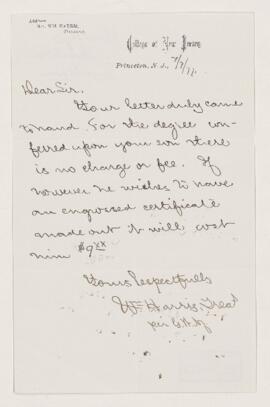 College of New Jersey
Princeton, N. J.,
Dear Sir.
Your letter duly came
to hand. For the degree con-
ferred upon your son there
is no charge or fee. If
however he wishes to have
an engrossed certificate
made out it will cost
him $9
Yours respectfully
Wm Harris, Treas
per